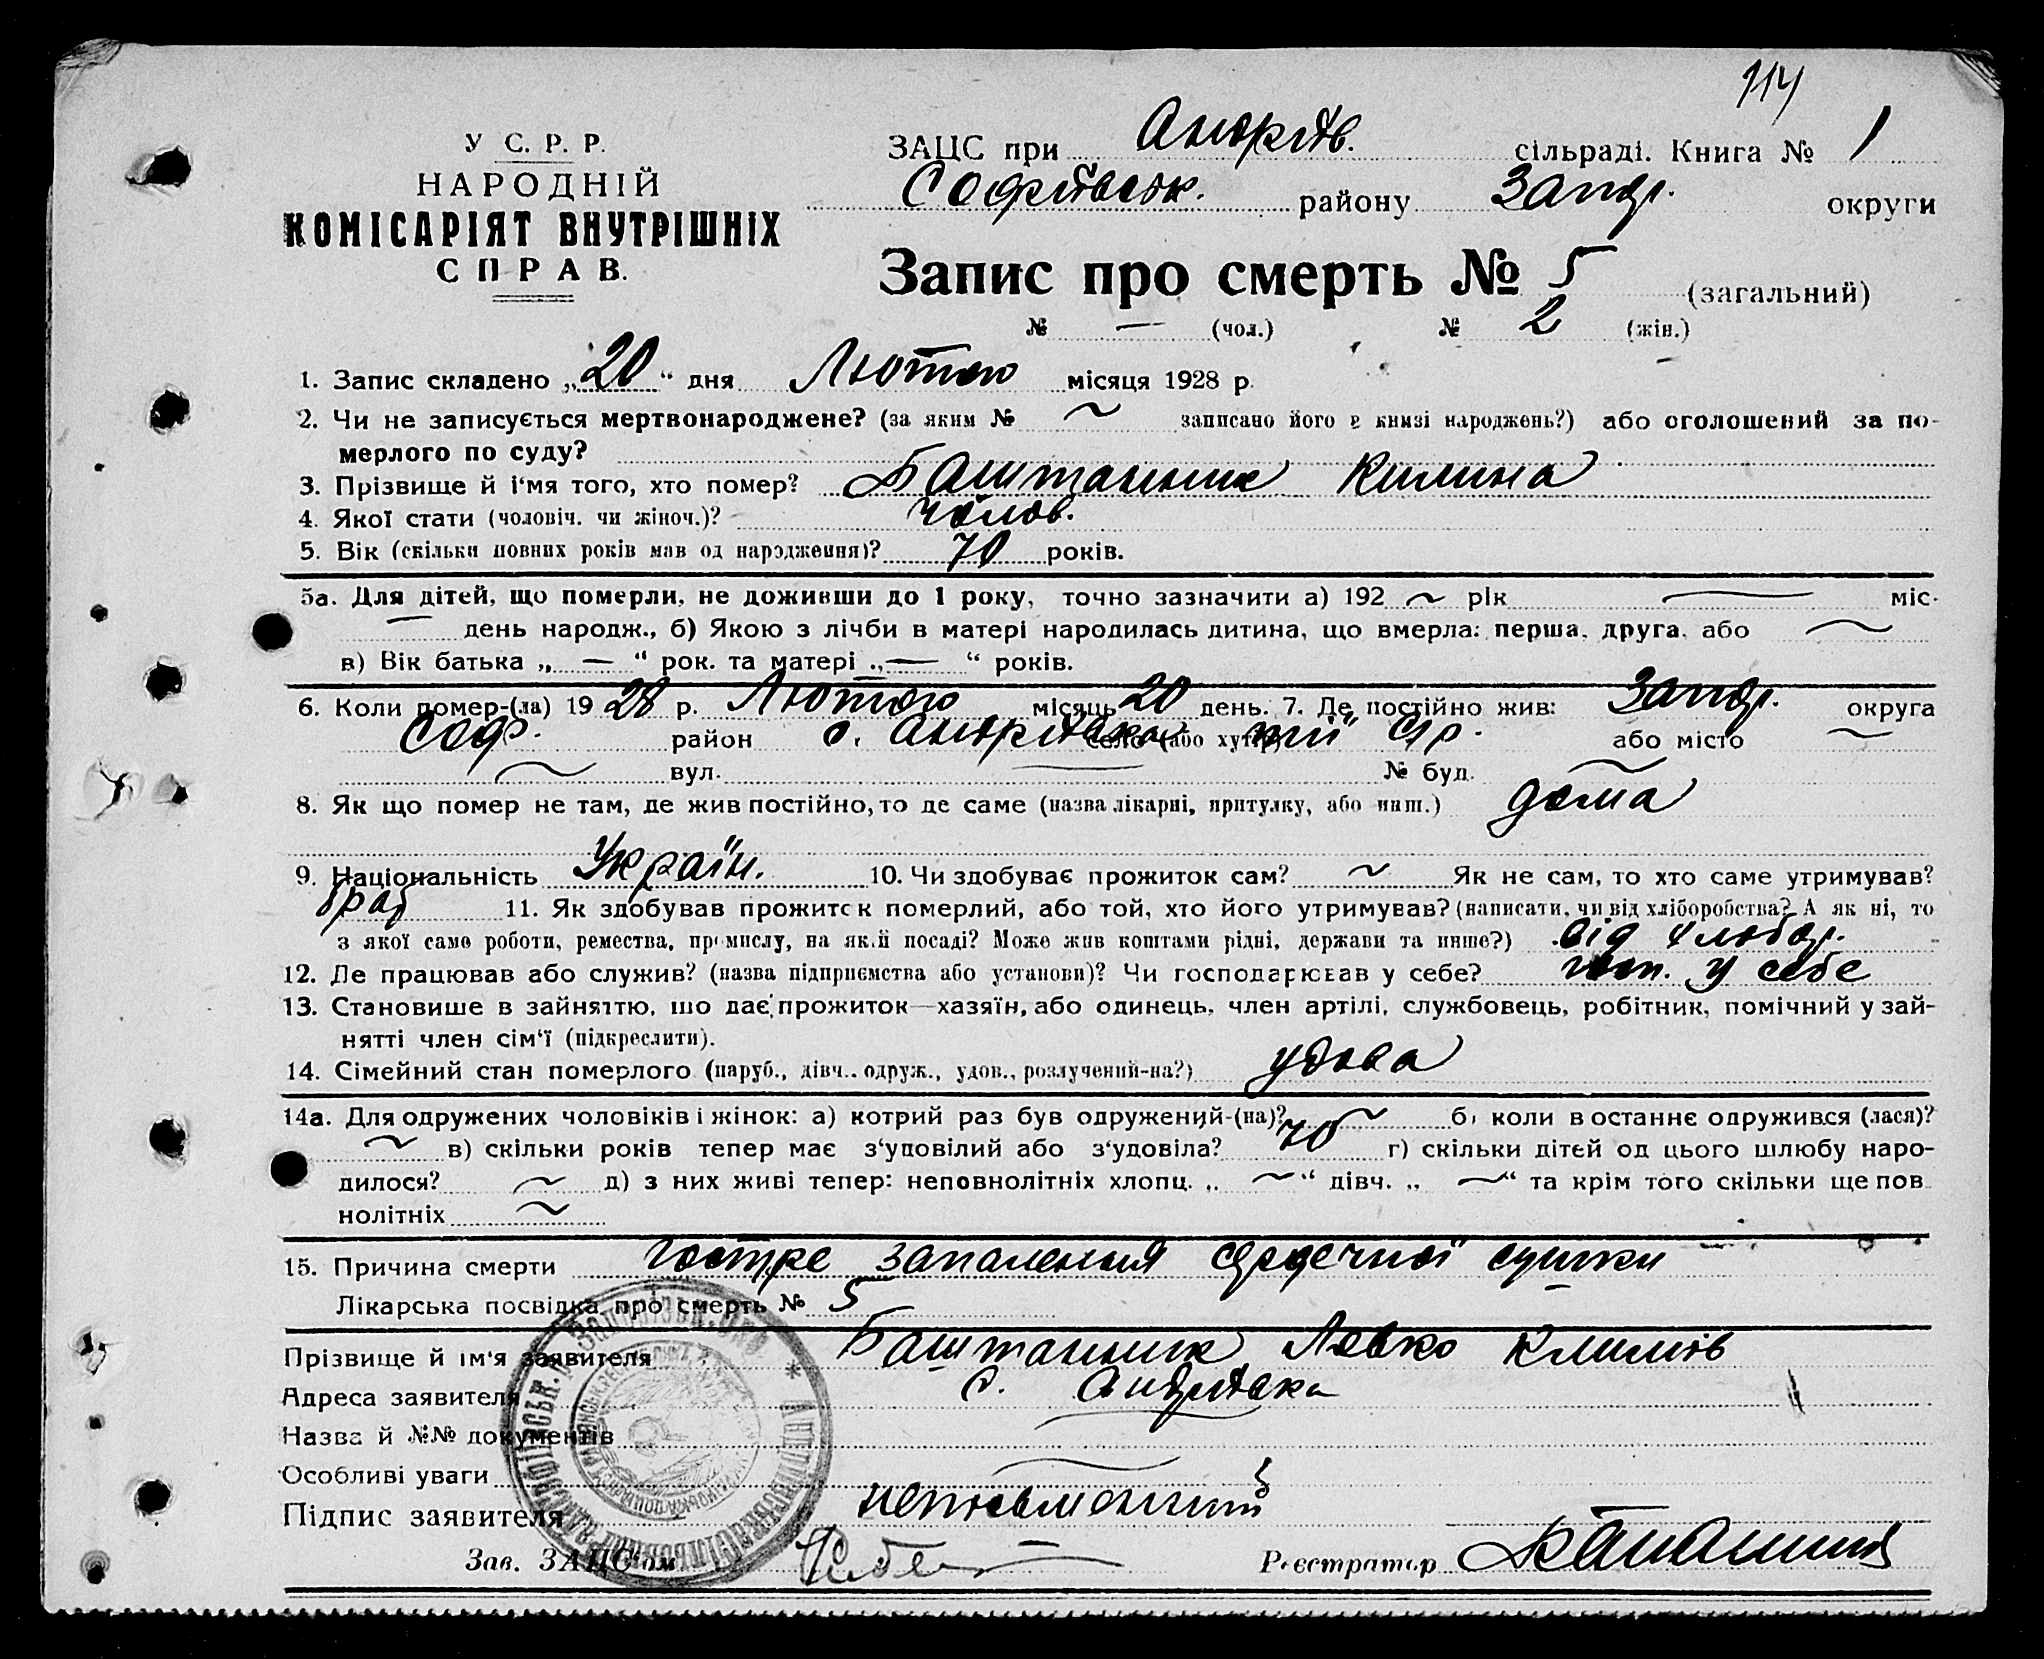 114
У С. Р. Р.
НАРОДНІЙ
КОМІСАРІЯТ ВНУТРІШНІХ
СПРАВ.
ЗАЦС при Андріїв. сільраді. Книга № 1
Софіївськ. району Запор. округи
Запис про смерть № 5 (загальний)
№ — (чол.) № 2 (жін.)
1. Запис складено „20“ дня Лютого місяця 1928 р.
2. Чи не записується мертвонароджене? (за яким № ~ записано його в книзі народжень?) або оголошений за по-
мерлого по суду?
3. Прізвище й ім‘я того, хто помер? Баштанник Килина
4. Якої стати (чоловіч. чи жіноч.)? чолов.
5. Вік (скільки повних років мав од народження)? 70 років.
5а. Для дітей, що померли, не доживши до 1 року, точно зазначити а) 192 ~ рік — міс.
— день народж., б) Якою з лічби в матері народилась дитина, що вмерла: перша, друга, або ~
в) Вік батька „ — “ рок. та матері „ — “ років.
6. Коли помер-(ла) 1928 р. Лютого місяць 20 день. 7. Де постійно жив: Запор. округа
Соф. район с. Андріївка село (або хутір) або місто ~
~ вул. — № буд. ~
8. Як що помер не там, де жив постійно, то де саме (назва лікарні, притулку, або инш.) дома
9. Національність Україн. 10. Чи здобуває прожиток сам? ~ Як не сам, то хто саме утримував?
брат 11. Як здобував прожиток померлий, або той, хто його утримував? (написати, чи від хліборобства? А як ні, то
з якої саме роботи, ремества, промислу, на якій посаді? Може жив коштами рідні, держави та инше?) від хлібор.
12. Де працював або служив? (назва підприємства або установи)? Чи господарював у себе? госп. у себе
13. Становище в зайняттю, що дає прожиток—хазяїн, або одинець, член артілі, службовець, робітник, помічний у зай-
нятті член сім‘ї (підкреслити).
14. Сімейний стан померлого (паруб., дівч., одруж., удов., розлучений-на?) удова
14а. Для одружених чоловіків і жінок: а) котрий раз був одружений-(на)? ~ б) коли востаннє одружився (лася)?
~ в) скільки років тепер має з‘удовілий або з‘удовіла? 70 г) скільки дітей од цього шлюбу наро-
дилося? ~ д) з них живі тепер: неповнолітніх хлопц. „ ~ “ дівч. „ ~ “ та крім того скільки ще пов
нолітніх ~
15. Причина смерти Гостре запалення сердечної сумки
Лікарська посвідка про смерть № 5
Прізвище й ім‘я заявителя Баштанник Левко Климів
Адреса заявителя с. Андріївка
Назва й №№ документів
Особливі уваги
Підпис заявителя неписьменний
Зав. ЗАЦС‘ом Реєстратор